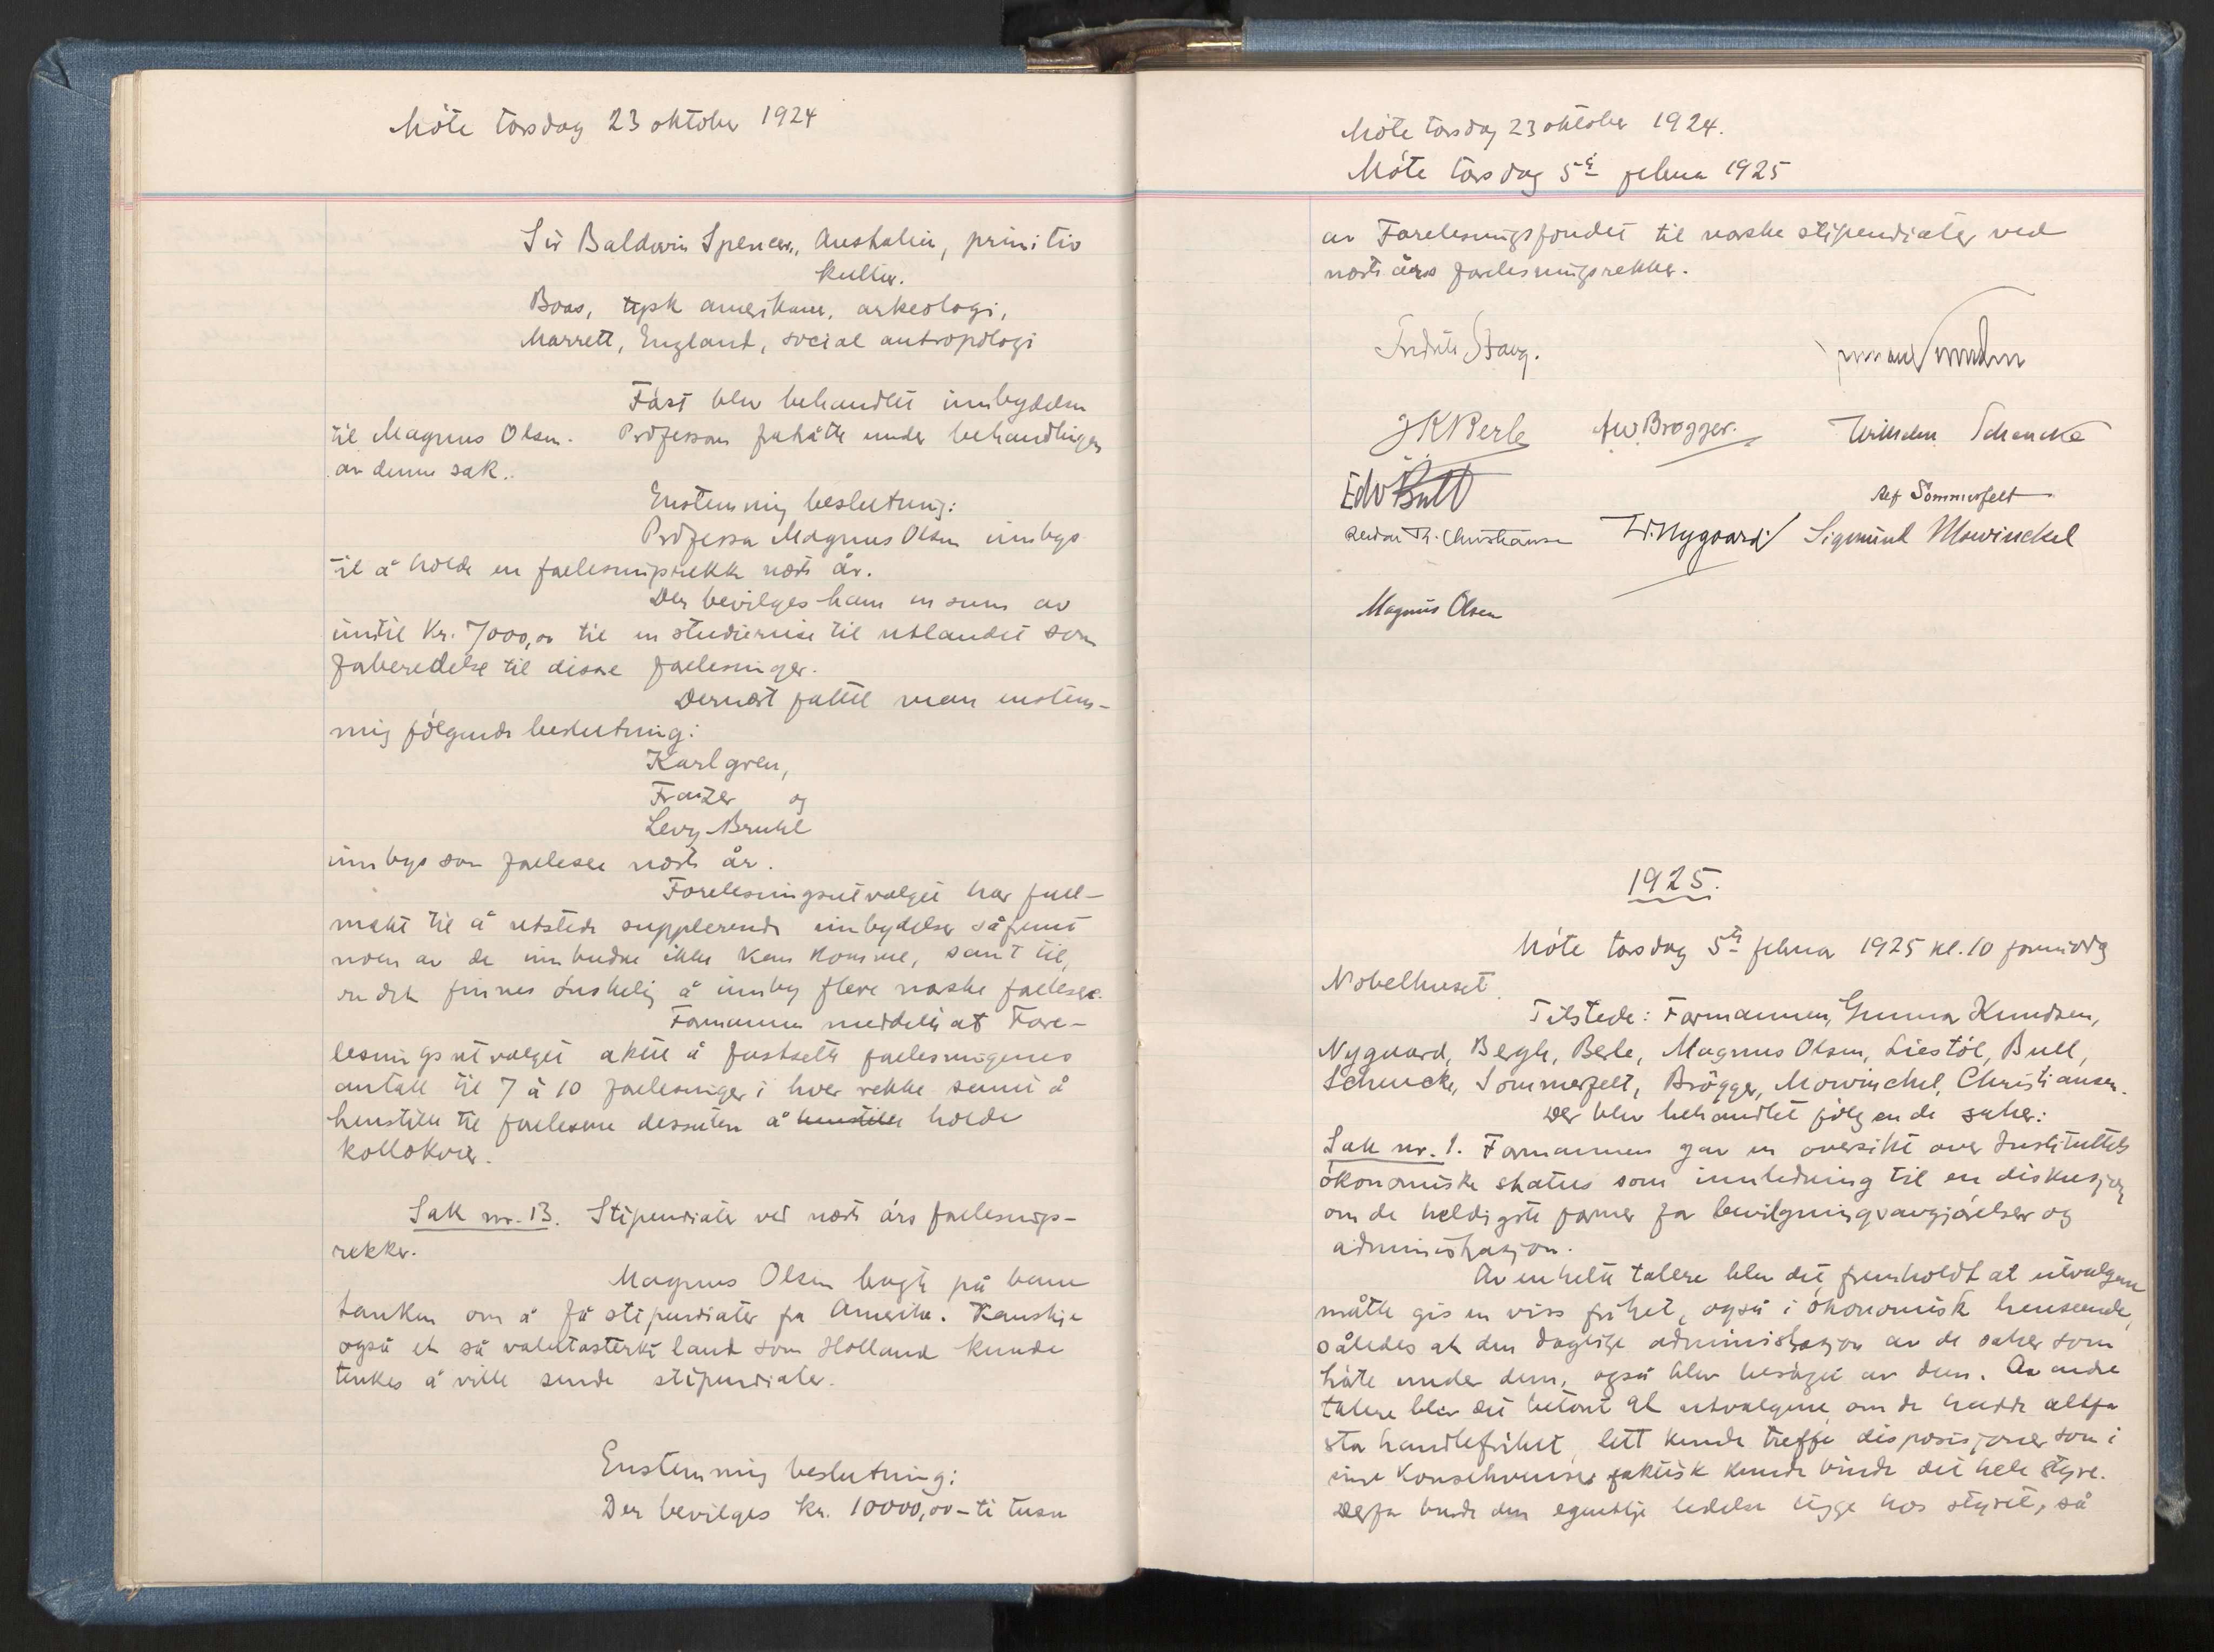 Möte torsdag 23 oktober 1924
Sir Baldwin Spencer, Australien, primitiv
kultur.
Boas, tysk amerikaner, arkeologi,
Marrett, England, social antropologi
Först blev behandlet innbydelsen
til Magnus Olsen. Professoren forlot under behandlingen
av denne sak..
Enstemmig beslutning:
Professor Magnus Olsen innbys
til å holde en forelesningsrekke næste år.
Der bevilges ham en sum av
inntil Kr. 7000,00 til en studiereise til utlandet som
forberedelse til disse forelesninger.
Dernæst fattet man enstem-
mig følgende beslutning:
Karlgren,
Frazer og
Levy-Bruhl
innbys som forelesere næste år.
Forelesningsutvalget har full-
makt til å utstede supplerende innbydelser såfremt
noen av de innbudne ikke kan komme, samt til,
om det finnes ønskelig å innby flere norske forelesere.
Formannen meddelte at Fore-
lesningsutvalget aktet å fastsette forelesningenes
antall til 7 à 10 forelesninger i hver rekke samt å
henstille til foreleserne dessuten å henstille holde
kollokvier.
Sak nr. 13. Stipendiater ved næste års forelesnings-
rekker.
Magnus Olsen bragte på bane
tanken om å få stipendiater fra Amerika. Kanskje
også et så valutasterkt land som Holland kunde
tenkes å ville sende stipendiater.
Enstemmig beslutning:
Der bevilges kr. 10000,00 - ti tusen
Möte torsdag 23 oktober 1924.
Möte torsdag 5te februar 1925
av Forelesningsfondet til norske stipendiater ved
næste års forelesningsrekker.
Fredrik Stang.
J K Berle AW Brøgger. Wilhelm Schencke
Edv Bull Alf Sommerfelt
Reidar Th. Christiansen W. Nygaard Sigmund Mowinckel
Magnus Olsen
1925.
Möte torsdag 5te februar 1925 kl. 10 formiddag
Nobelhuset.
Tilstede: Formannen, Gunnar Knudsen,
Nygaard, Bergh, Berle, Magnus Olsen, Liestöl, Bull,
Schencke, Sommerfelt, Brögger, Mowinckel, Christiansen.
Der blev behandlet følgende saker:
Sak nr. 1. Formannen gav en oversikt over Instituttets
ökonomiske status som innledning til en diskusjon
om de heldigste former for bevilgningsavgjörelser og
administrasjon.
Av enkelte talere blev det fremholdt at utvalgene
måtte gis en viss frihet, også i ökonomisk henseende,
således at den daglige administrasjon av de saker som
hörte under dem, også blev besörget av dem. Av andre
talere blev det betont at utvalgene, om de hadde altfor
stor handlefrihet, lett kunde treffe disposisjoner som i
sine konsekvenser faktisk kunde binde det hele styre.
Derfor burde den egentlige ledelse ligge hos styret, så